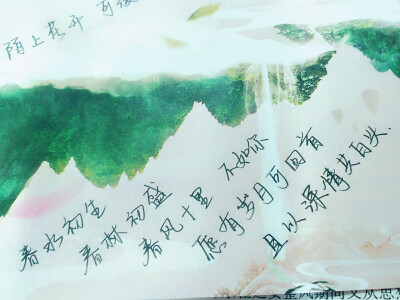 陌上花开 可缓
春水初生
春林初盛
春风十里 不如你
愿有岁月可回首
且以深情共白头.